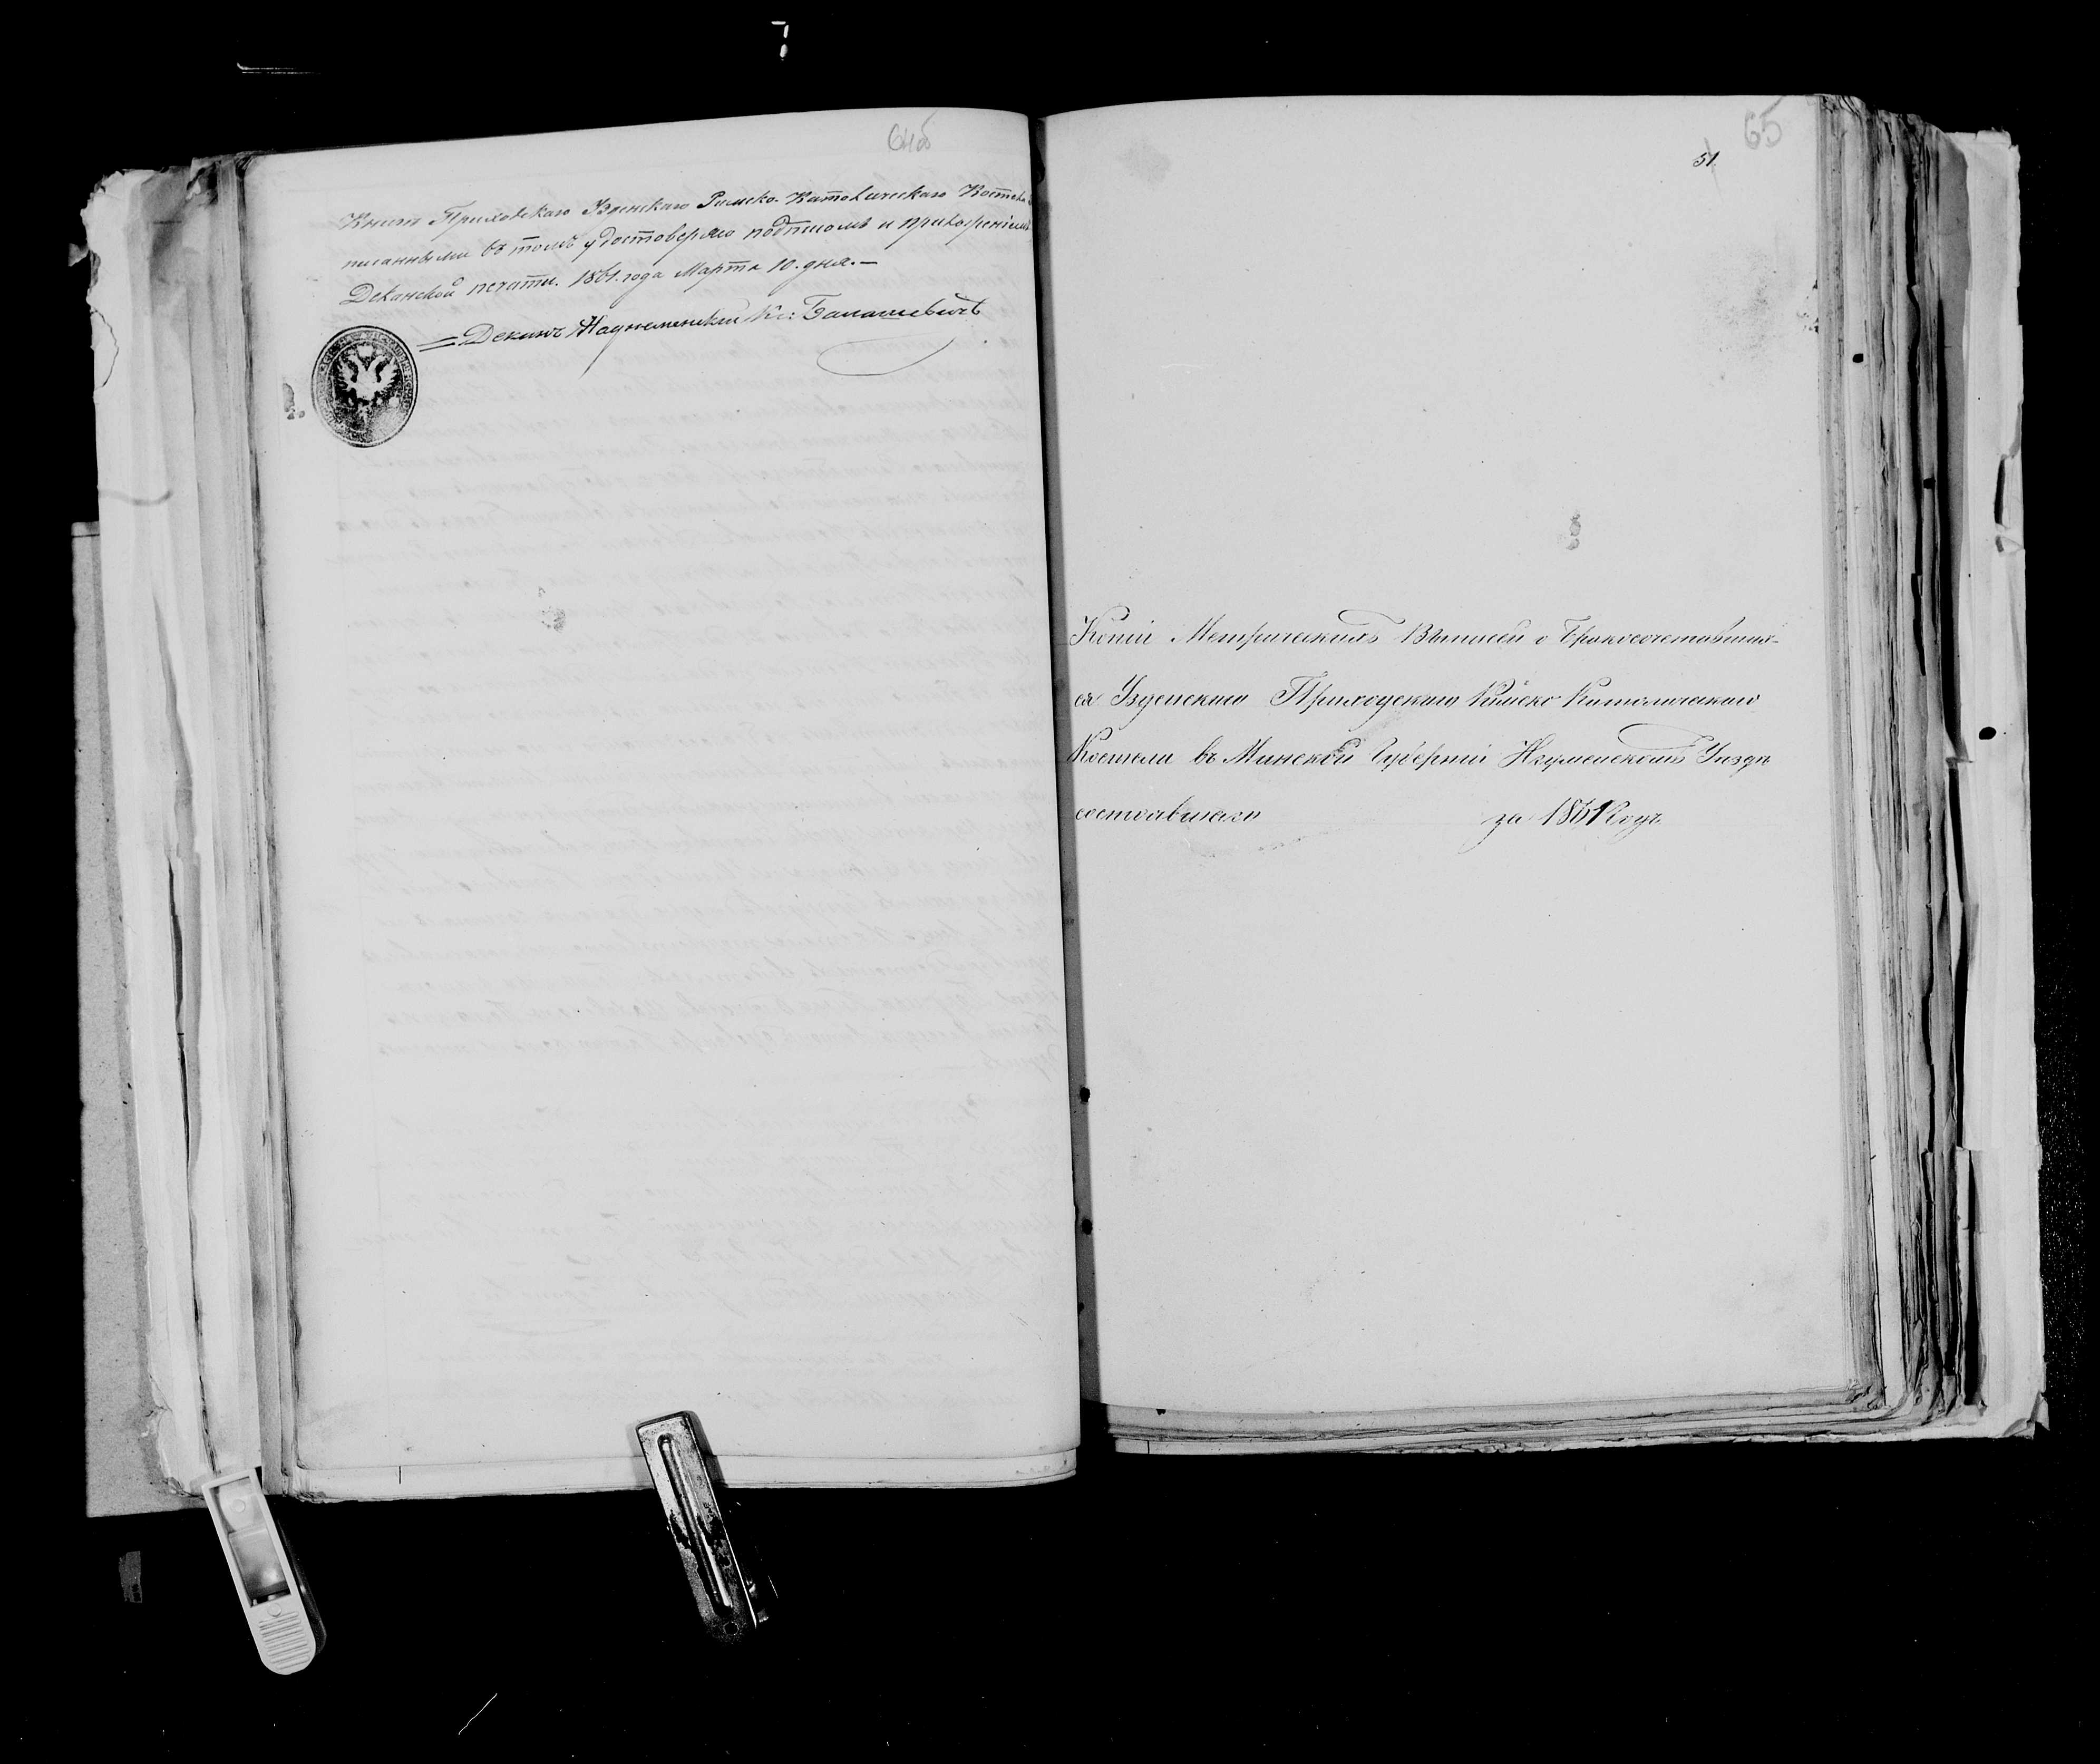 64об
Книгъ Приходскаго Узденскаго Римско-Католическаго Костела
писанными въ томъ удостоверяю подписомъ и приложеніемъ
Деканской печати. 1861. года Марта 10. дня.—
Деканъ Кс: Балашевичъ
65
51
Копіи Метрическихъ Выписей о Бракосочетавших-
ся Узденскаго Приходскаго Римско Католическаго
Костела въ Минской Губерніи Игуменскомъ Уѣздѣ
состоявшаго за 1861 Годъ